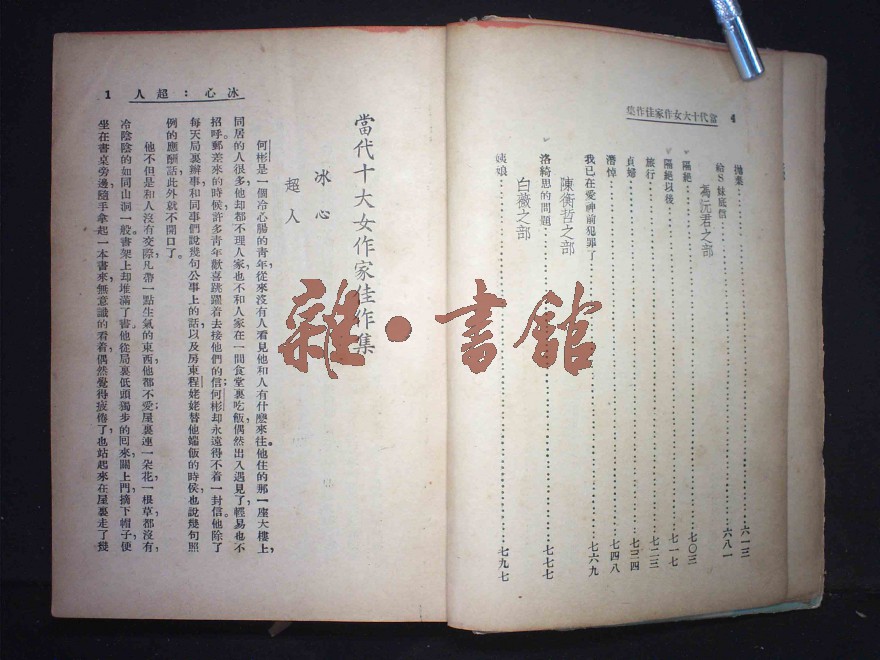 4 當代十大女作家佳作集
拋棄 六一三
給S妹底信 六八一
馮沅君之部
隔絕 七〇三
隔絕以後 七一七
旅行 七二三
貞婦 七三四
潛悼 七四八
我已在愛神前犯罪了 七六九
陳衡哲之部
洛綺思的問題 七七七
白薇之部
姨娘 七九七
冰心：超人 1
當代十大女作家佳作集
冰心
超人
何彬是一個冷心腸的青年，從來沒有人看見他和人有什麼來往。他住的那一座大樓上，
同居的人很多，他却都不理人家，也不和人家在一間食堂裏吃飯，偶然出入遇見了，輕易也不
招呼。郵差來的時候，許多青年歡喜跳躍着去接他們的信，何彬却永遠得不着一封信。他除了
每天局裏辦事，和同事們說幾句公事上的話，以及房東程姥姥替他端飯的時候，也說幾句照
例的應酬話，此外就不開口了。
他不但是和人沒有交際，凡帶一點生氣的東西，他都不愛；屋裏連一朵花，一根草，都沒有，
冷陰陰的如同山洞一般。書架上却堆滿了書。他從局裏低頭獨步的回來，關上門，摘下帽子，便
坐在書桌旁邊，隨手拿起一本書來，無意識的看着，偶然覺得疲倦了，也站起來在屋裏走了幾
雜·書館